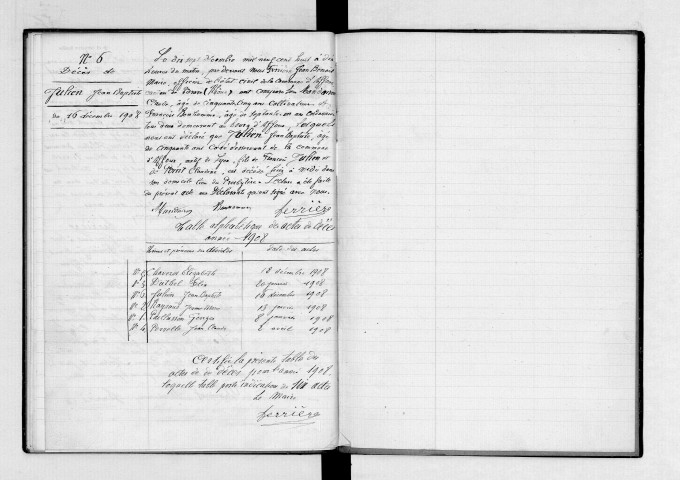 N° 6
Décès de
Julien Jean Baptiste
du 16 décembre 1908
Le dix sept décembre mil neuf cent huit à dix
heures du matin, par devant nous Ferrière Jean
Maire, officier de l'état civil de la commune d'Affoux
canton de Tarare (Rhône) ont comparu
Claude, âgé de cinquante cinq ans cultivateur, et
François, âgé de septante un ans cultivateur
tous deux demeurant au bourg d'Affoux, lesquels
nous ont déclaré que Julien Jean Baptiste, âgé
de cinquante ans Curé demeurant de la commune
d'Affoux, natif de Lyon, fils de François Julien et
de Claudine, est décédé hier à midi dans
son domicile lieu du Presbytère. Lecture a été faite
du présent acte aux déclarants qui ont signé avec nous.
Ferrière
Table alphabétique des actes de Décès
année 1908
Noms et prénoms des décédés date des actes
N° 5 Charvet Elisabeth 13 décembre 1908
N° 3 20 janvier 1908
N° 6 Julien Jean Baptiste 16 décembre 1908
N° 2 13 janvier 1908
N° 1 8 janvier 1908
N° 4 Perrolle Jean Claude 2 avril 1908
Certifié la présente table des
actes de décès pour l'année 1908
laquelle table porte indication de six actes
Le Maire
Ferrière